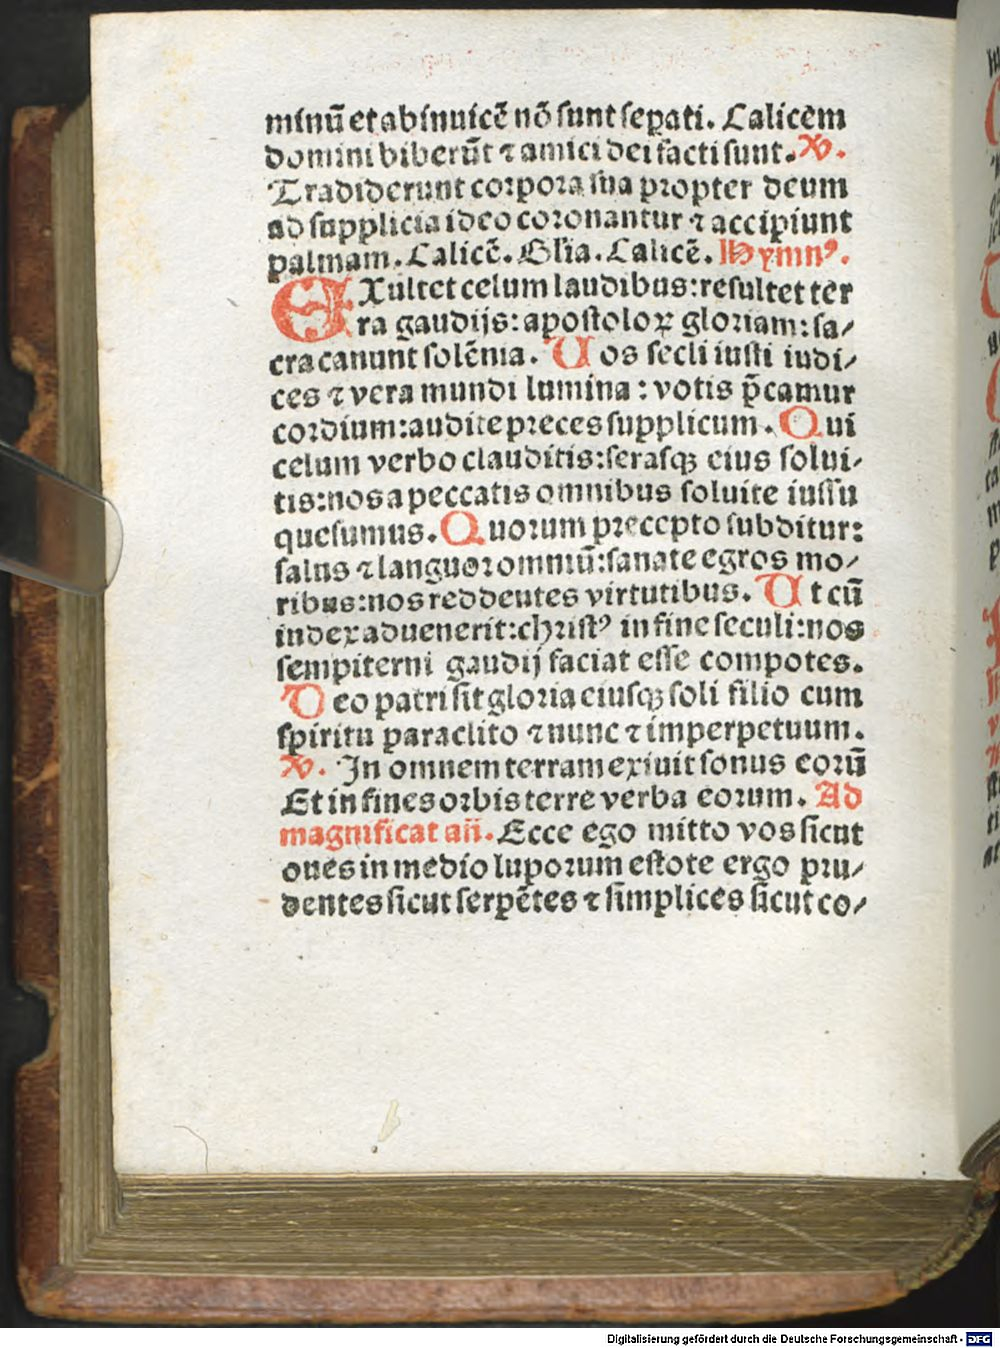 minū et abinuicē nō sunt seꝑati. Calicem
domini biberūt ⁊ amici dei facti sunt. ℣.
Tradiderunt corpora sua propter deum
ad supplicia ideo coronantur ⁊ accipiunt
palmam. Calicē. Glia. Calicē. Hymnꝰ.
EXultet celum laudibus: resultet ter
ra gaudijs: apostoloꝝ gloriam: sa/
cra canunt solēnia. Uos secli iusti iudi/
ces ⁊ vera mundi lumina: votis p̄camur
cordium: audite preces supplicum. Qui
celum verbo clauditis: serasqꝫ eius solui/
tis: nos a peccatis omnibus soluite iussu
quesumus. Quorum precepto subditur:
salus ⁊ languor omniū: sanate egros mo/
ribus: nos reddentes virtutibus. Ut cū
index aduenerit: christꝰ in fine seculi: nos
sempiterni gaudij faciat esse compotes.
Deo patri sit gloria eiusqꝫ soli filio cum
spiritu paraclito ⁊ nunc ⁊ imperpetuum.
℣. In omnem terram exiuit sonus eorū
Et in fines orbis terre verba eorum. Ad
magnificat an̄. Ecce ego mitto vos sicut
oues in medio luporum estote ergo pru/
dentes sicut serpētes ⁊ simplices sicut co/
Digitalisierung gefördert durch die Deutsche Forschungsgemeinschaft - DFG